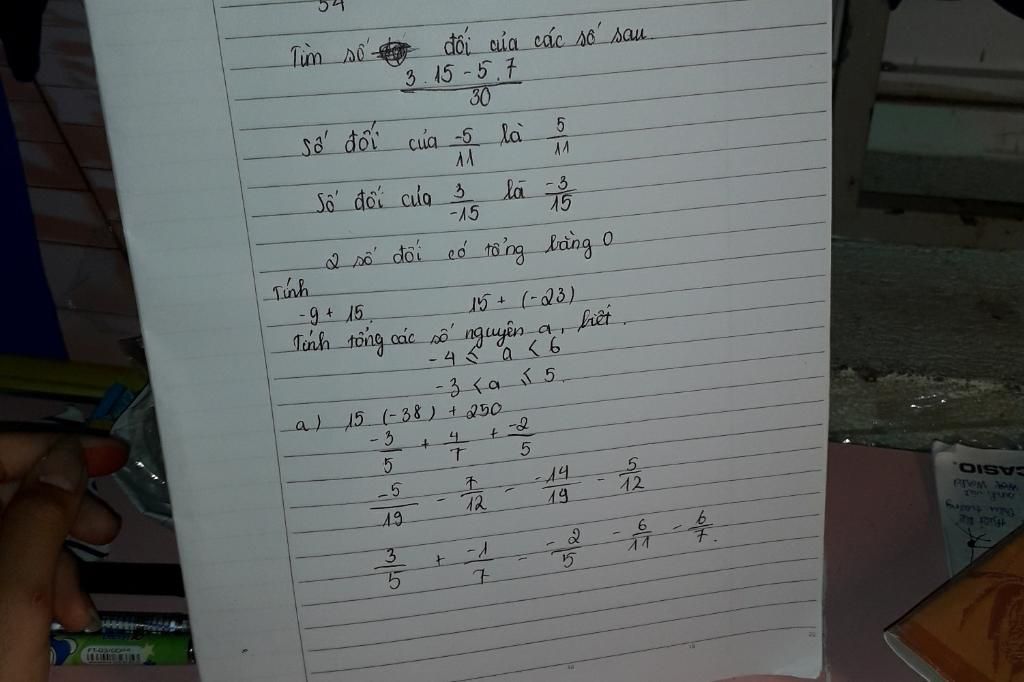 54
Tìm số đối của các số sau
3.15 - 5.7
30
Số đối của -5/11 là 5/11
Số đối của 3/-15 là -3/15
2 số đối có tổng bằng 0
Tính
-9 + 15. 15 + (-23)
Tính tổng các số nguyên a, biết.
-4 ≤ a < 6
-3 < a ≤ 5.
a) 15.(-38) + 250
-3/5 + 4/7 + -2/5
-5/19 - 7/12 - -14/19 - 5/12
3/5 + -1/7 - -2/5 - 6/11 - 6/7.
CASIO